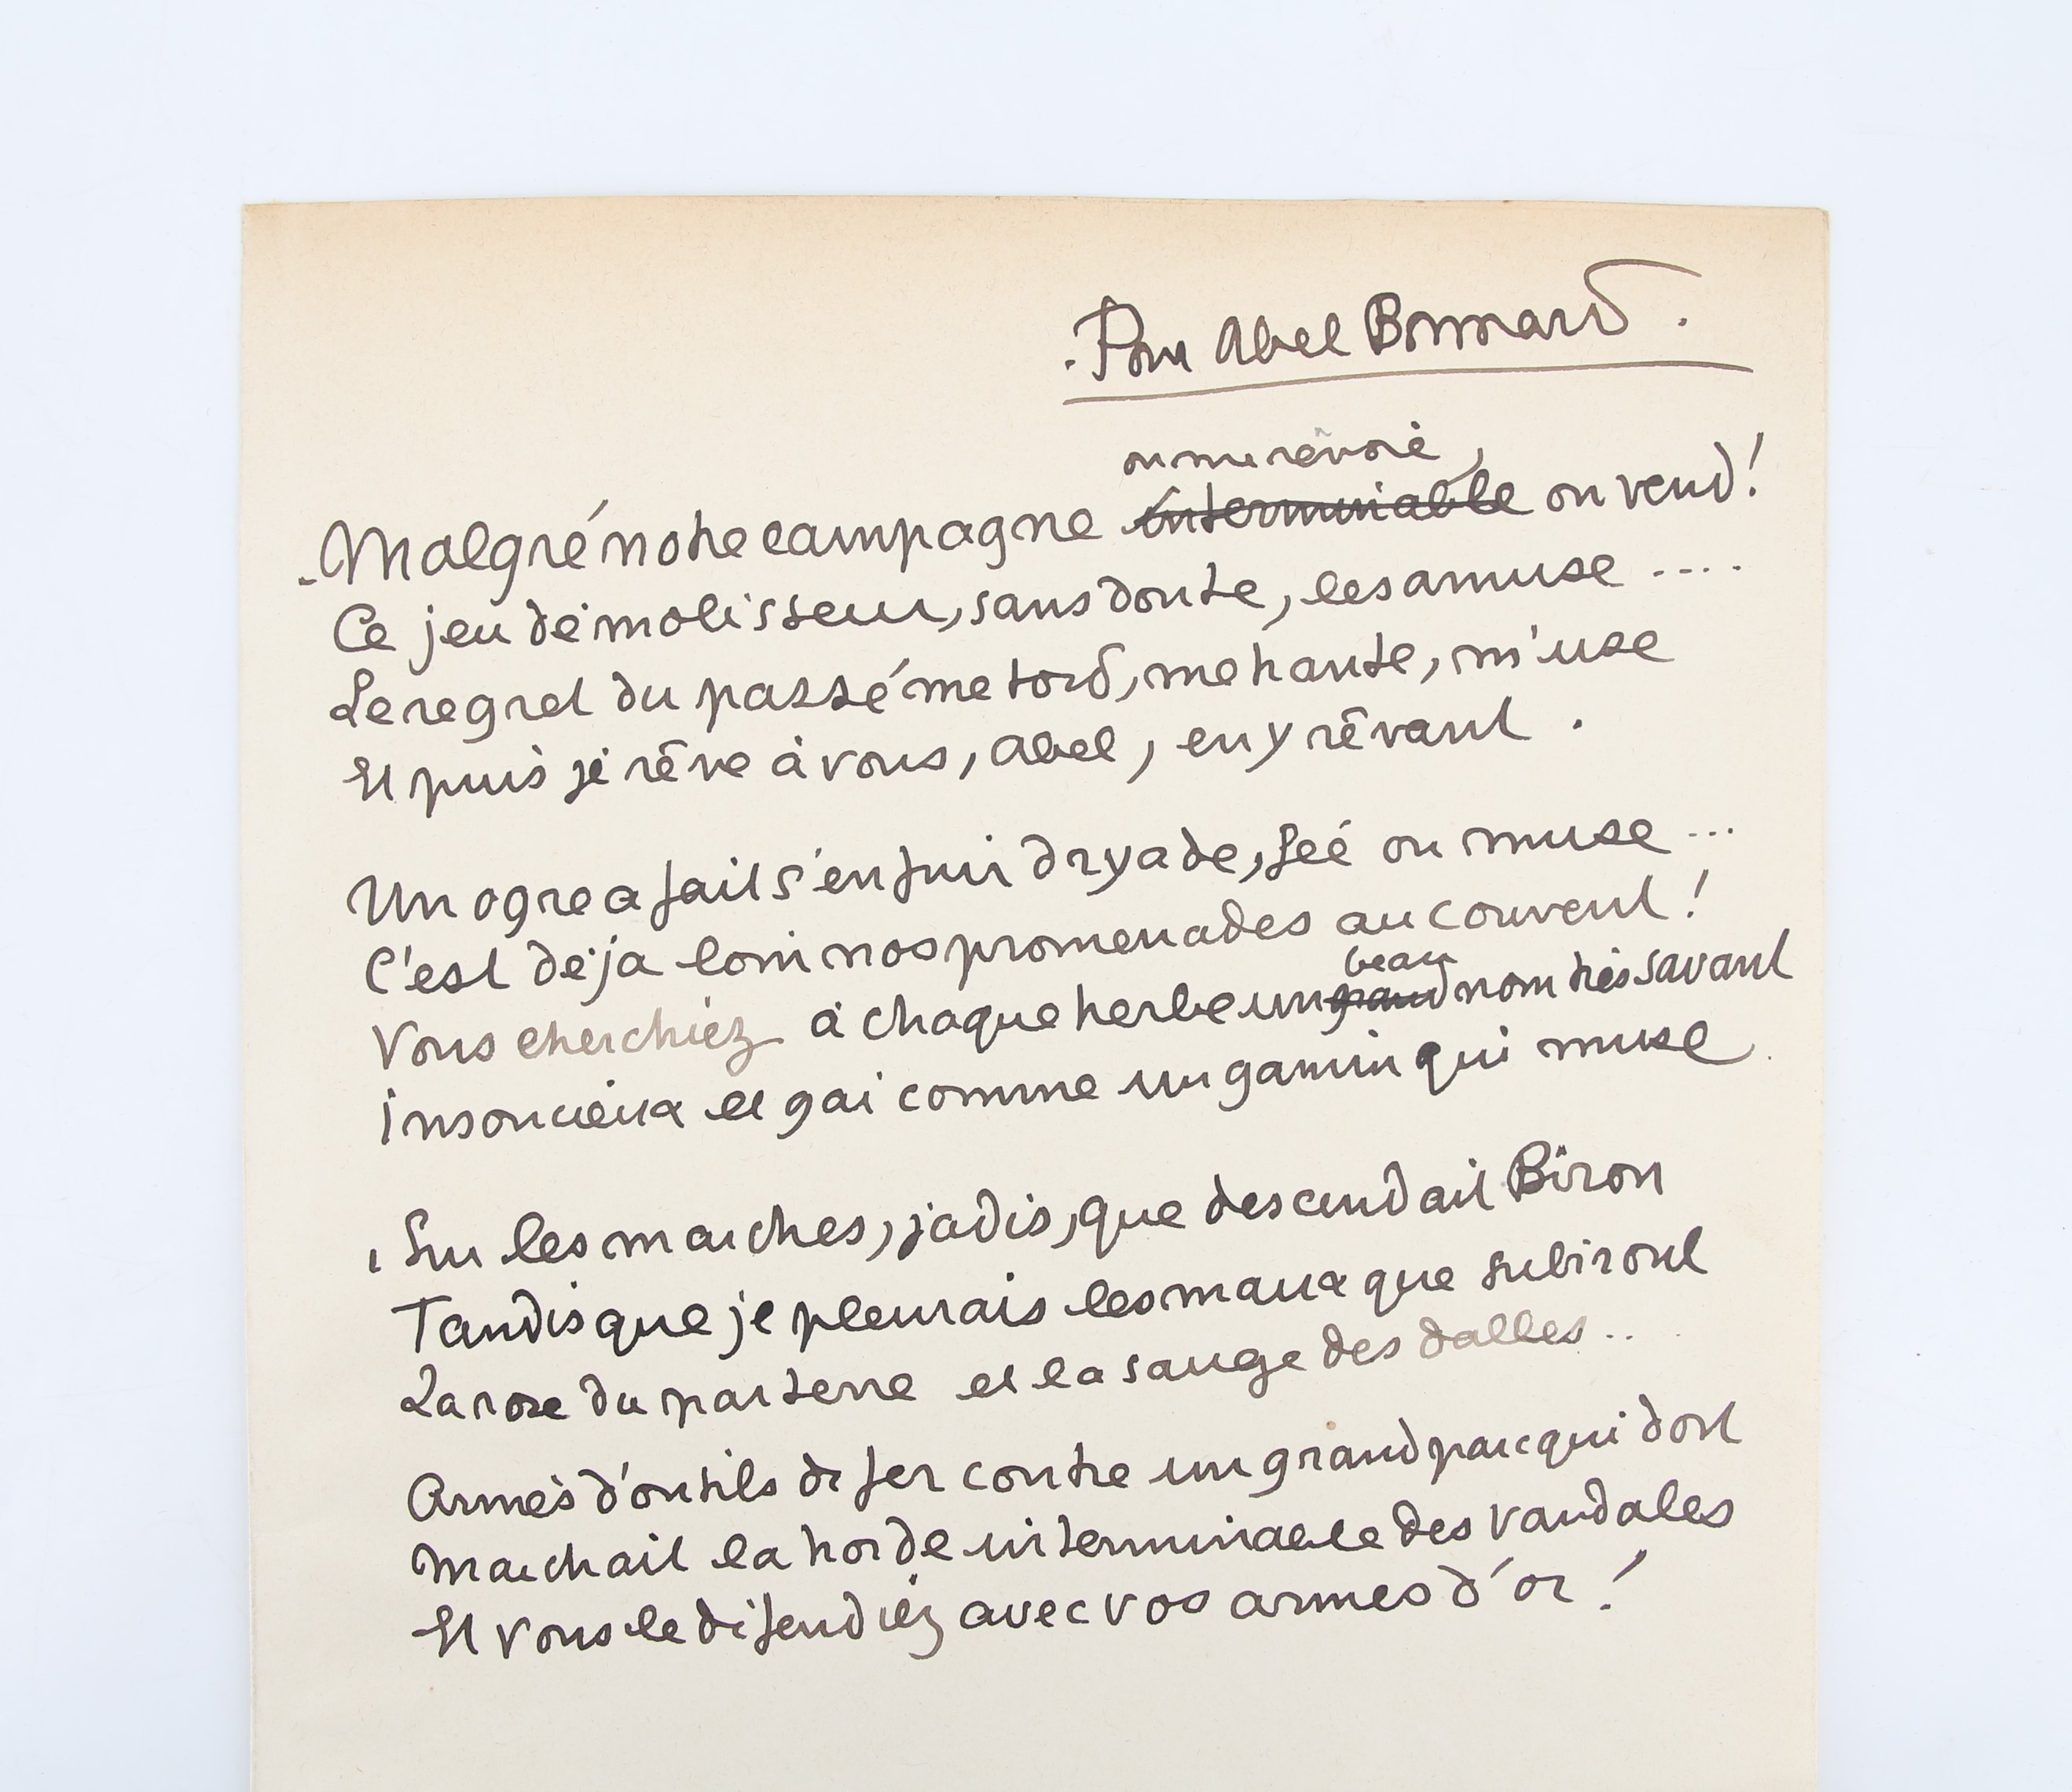 . Pour Abel Bonnard .
on me renvoie,
Malgré notre campagne interminable on vend !
Ce jeu démolisseur, sans doute, les amuse ....
Le regret du passé me tord, me hante, m'use
Et puis je rêve à vous, Abel, en y rêvant .
Un ogre a fait s'enfuir dryade, fée ou muse ...
C'est déjà loin nos promenades au couvent !
beau
Vous cherchiez à chaque herbe un grand nom très savant
Insoucieux et gai comme un gamin qui muse .
Sur les marches, jadis, que descendait Biron
Tandis que je pleurais les maux que subiront
La rose du parterre et la sauge des dalles ...
Armés d'outils de fer contre un grand parc qui dort
Marchait la horde interminable des vandales
Et vous le défendiez avec vos armes d'or !